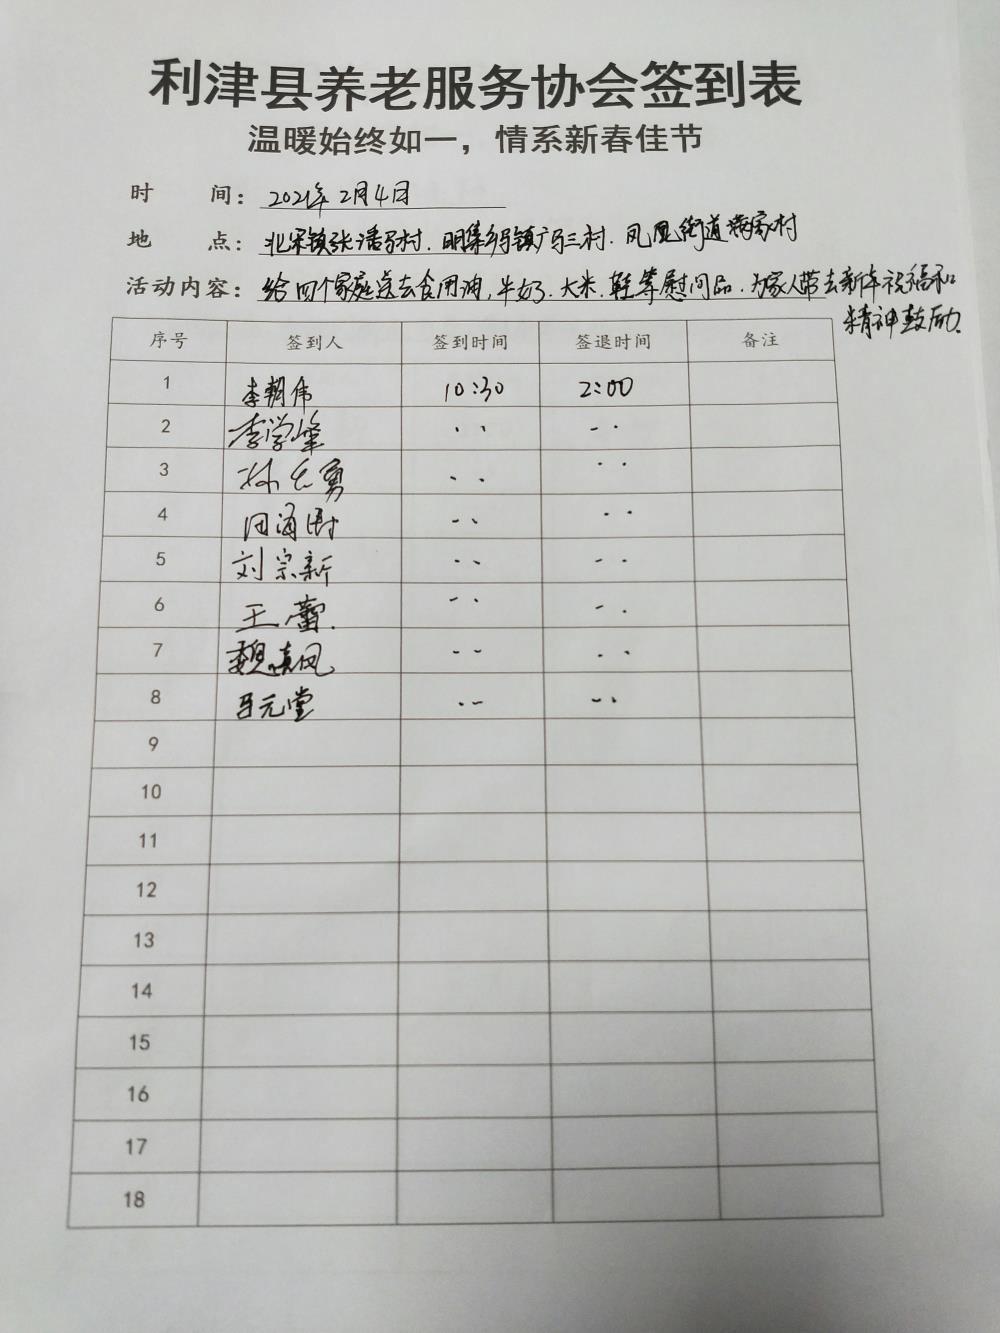 利津县养老服务协会签到表
温暖始终如一，情系新春佳节
时 间：2021年2月4日
地 点：北宋镇张潘马村．明集乡 镇广马三村．凤凰街道 家村
活动内容：给四个家庭送去食用油，牛奶．大米．鞋等慰问品．为家人带去新年祝福和
精神鼓励．
序号 签到人 签到时间 签退时间 备注
1 李朝伟 10:30 2:00
2 李学峰 ‥ ‥
3 孙 勇 ‥ ‥
4 田海 ‥ ‥
5 刘宗新 ‥ ‥
6 王蕾. ‥ ‥
7 魏 凤 ‥ ‥
8 马元堂 ‥ ‥
9
10
11
12
13
14
15
16
17
18